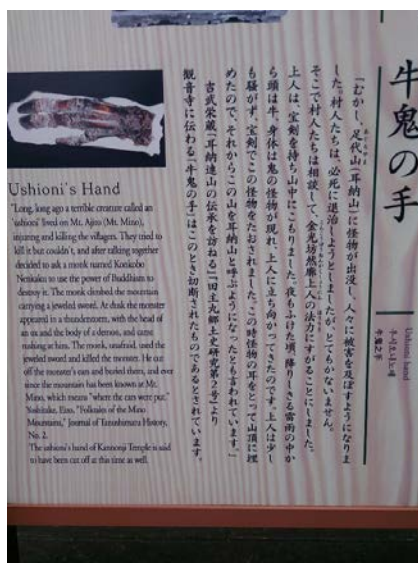 牛鬼の手
Ushioni hand
우시오니노 테
牛鬼之手
「むかし、足代山（耳納山）に怪物が出没し、人々に被害を及ぼすようになりま
した。村人たちは、必死に退治しようとしましたが、とてもかないません。
そこで村人たちは相談して、金光坊然廓上人の法力にすがることにしました。
上人は、宝剣を持ち山中にこもりました。夜もふけた頃、降りしきる雷雨の中か
ら頭は牛、身体は鬼の怪物が現れ、上人に立ち向かってきたのです。上人は少し
も騒がず、宝剣でこの怪物をたおされました。この時怪物の耳をとって山頂に埋
めたので、それからこの山を耳納山と呼ぶようになったとも言われています。」
吉武栄蔵「耳納連山の伝承を訪ねる」『田主丸郷土史研究第２号』より
観音寺に伝わる「牛鬼の手」はこのとき切断されたものであるとされています。
Ushioni's Hand
"Long, long ago a terrible creature called an
'ushioni' lived on Mt. Ajiro (Mt. Mino),
injuring and killing the villagers. They tried to
kill it but couldn't, and after talking together
decided to ask a monk named Konkobo
Nenkaku to use the power of Buddhism to
destroy it. The monk climbed the mountain
carrying a jeweled sword. At dusk the monster
appeared in a thunderstorm, with the head of
an ox and the body of a demon, and came
rushing at him. The monk, unafraid, used the
jeweled sword and killed the monster. He cut
off the monster's ears and buried them, and ever
since the mountain has been known at Mt.
Mino, which means "where the ears were put."
Yoshitake, Eizo, "Folktales of the Mino
Mountains," Journal of Tanushimaru History,
No. 2.
The ushioni's hand of Kannonji Temple is said
to have been cut off at this time as well.